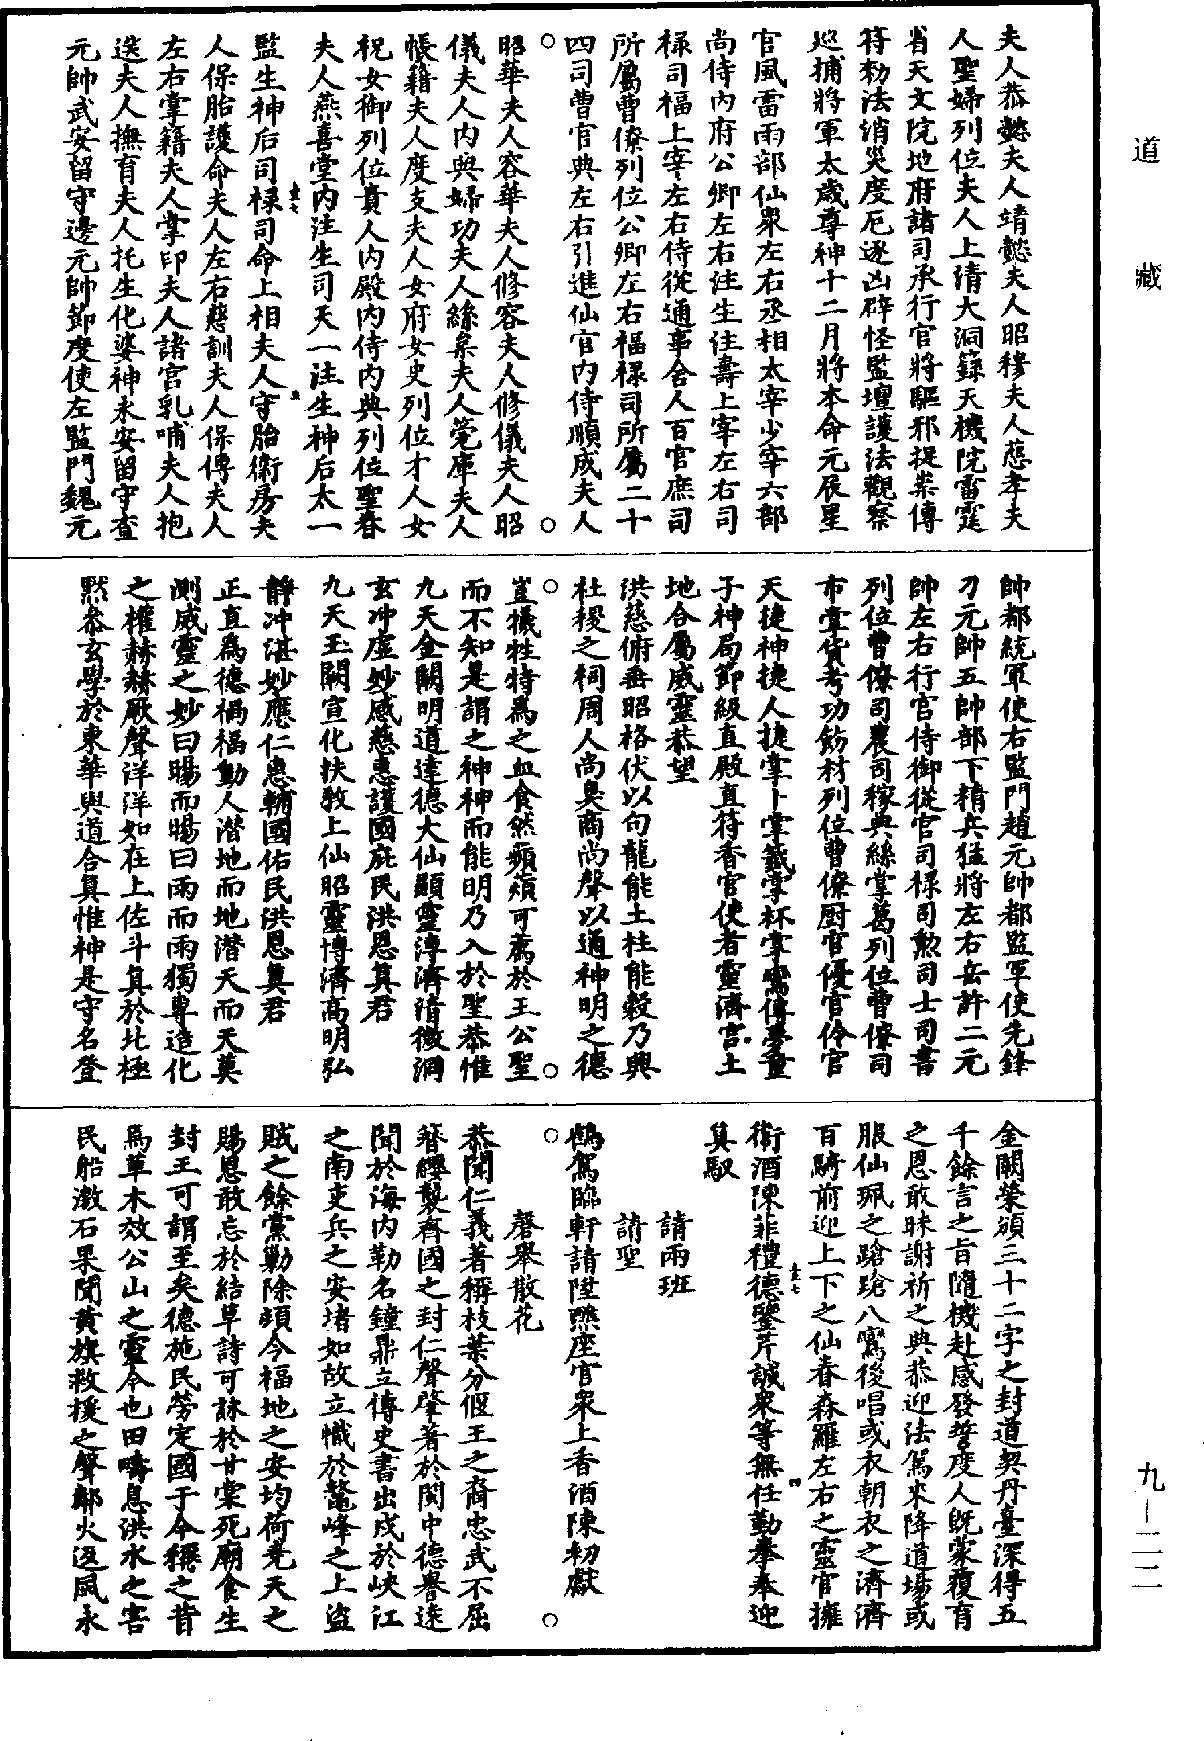 道藏
九—一二
夫人恭懿夫人靖懿夫人昭穆夫人慈孝夫
人聖婦列位夫人上清大洞籙天機院雷霆
省天文院地府諸司承行官將驅邪捉祟傳
符勑法消災度厄逐凶辟怪監壇護法觀察
巡捕將軍太歲尊神十二月將本命元辰星
官風雷雨部仙衆左右丞相太宰少宰六部
尚侍內府公卿左右注生注壽上宰左右司
祿司福上宰左右侍從通事舍人百官庶司
所屬曹僚列位公卿左右福祿司所屬二十
四司曹官典左右引進仙官內侍順成夫人
昭華夫人容華夫人修容夫人修儀夫人昭
儀夫人內輿婦功夫人絲枲夫人筦庫夫人
帳籍夫人度支夫人女府女史列位才人女
祝女御列位貴人內殿內侍內典列位聖眷
夫人燕喜堂內注生司天一注生神后太一
監生神后司祿司命上相夫人守胎衛房夫
人保胎護命夫人左右慈訓夫人保傅夫人
左右掌籍夫人掌印夫人諸宮乳哺夫人抱
送夫人撫育夫人托生化婆神永安留守查
元帥武安留守邊元帥節度使左監門魏元
帥都統軍使右監門趙元帥都監軍使先鋒
刀元帥五帥部下精兵猛將左右岳許二元
帥左右行宮侍御從官司祿司勲司士司書
列位曹僚司農司稼典絲掌葛列位曹僚司
市掌貨考功飭材列位曹僚厨官優官伶官
天捷神捷人捷掌卜掌籖掌杯掌鸞傳夢童
子神局節級直殿直符香官使者靈濟宮土
地合屬威靈恭望
洪慈俯垂昭格伏以句龍能土柱能穀乃興
社稷之祠周人尚臭商尚聲以通神明之德
豈犧牲特爲之血食然蘋蘩可薦於王公聖
而不知是謂之神神而能明乃入於聖恭惟
九天金闕明道達德大仙顯靈溥濟清微洞
玄冲虛妙感慈惠護國庇民洪恩真君
九天玉闕宣化扶教上仙昭靈博濟高明弘
靜冲湛妙應仁惠輔國佑民洪恩真君
正直爲德禍福動人潜地而地潜天而天莫
測威靈之妙曰暘而暘曰雨而雨獨專造化
之權赫赫厥聲洋洋如在上佐斗真於北極
黙恭玄學於東華與道合真惟神是守名登
金闕榮頒三十二字之封道契丹臺深得五
千餘言之旨隨機赴感發誓度人既蒙覆育
之恩敢昧謝祈之典恭迎法駕來降道場或
服仙珮之蹌蹌八鸞後唱或衣朝衣之濟濟
百騎前迎上下之仙眷森羅左右之靈官擁
衛酒陳菲禮德鑒芹誠衆等無任勤拳奉迎
真馭
請兩班
請聖
鶴駕臨軒請陞㷼座官衆上香酒陳初獻
磬舉散花
恭聞仁義著稱枝葉分偃王之裔忠武不屈
簪纓襲齊國之封仁聲肇著於閩中德譽遠
聞於海內勒名鐘鼎立傳史書出戍於峽江
之南吏兵之安堵如故立幟於鼇峰之上盜
賊之餘黨勦除頃今福地之安均荷堯天之
賜恩敢忘於結草詩可詠於甘棠死廟食生
封王可謂至矣德施民勞定國于今稱之昔
爲草木效公山之靈今也田疇息洪水之害
民船激石果聞黃旗救援之聲鄰火返風永